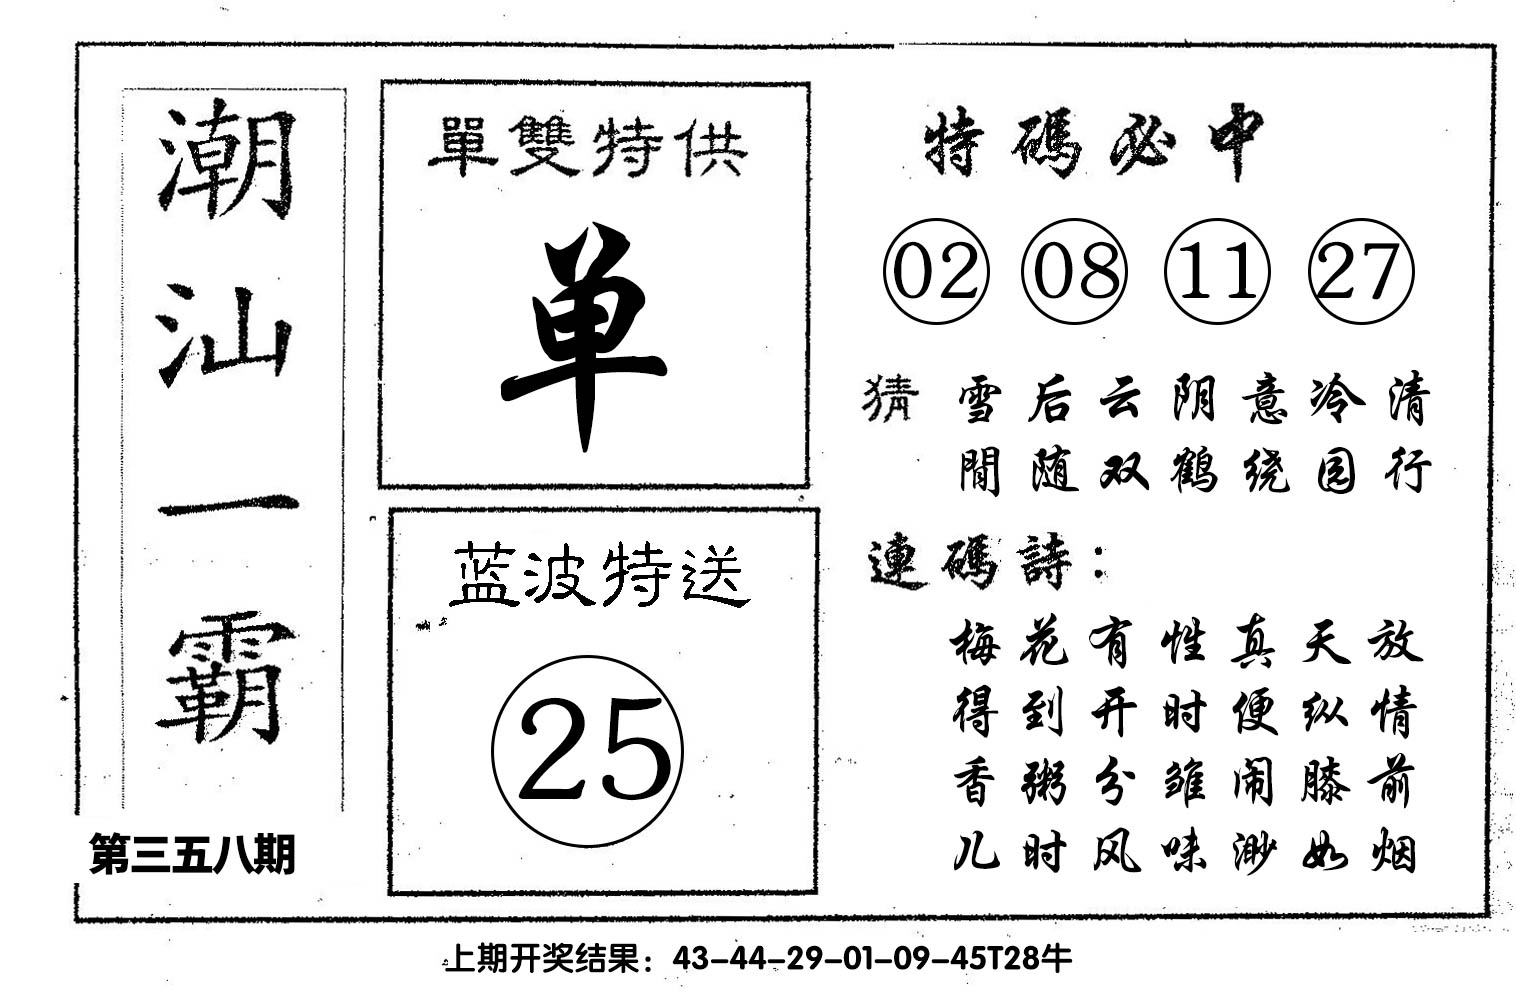 潮汕一霸
第三五八期
單雙特供
单
蓝波特送
25
特碼必中
02 08 11 27
猜 雪后云阴意冷清
閒随双鹤绕园行
連碼詩：
梅花有性真天放
得到开时便纵情
香粥分雏闹膝前
儿时风味渺如烟
上期开奖结果：43-44-29-01-09-45T28牛